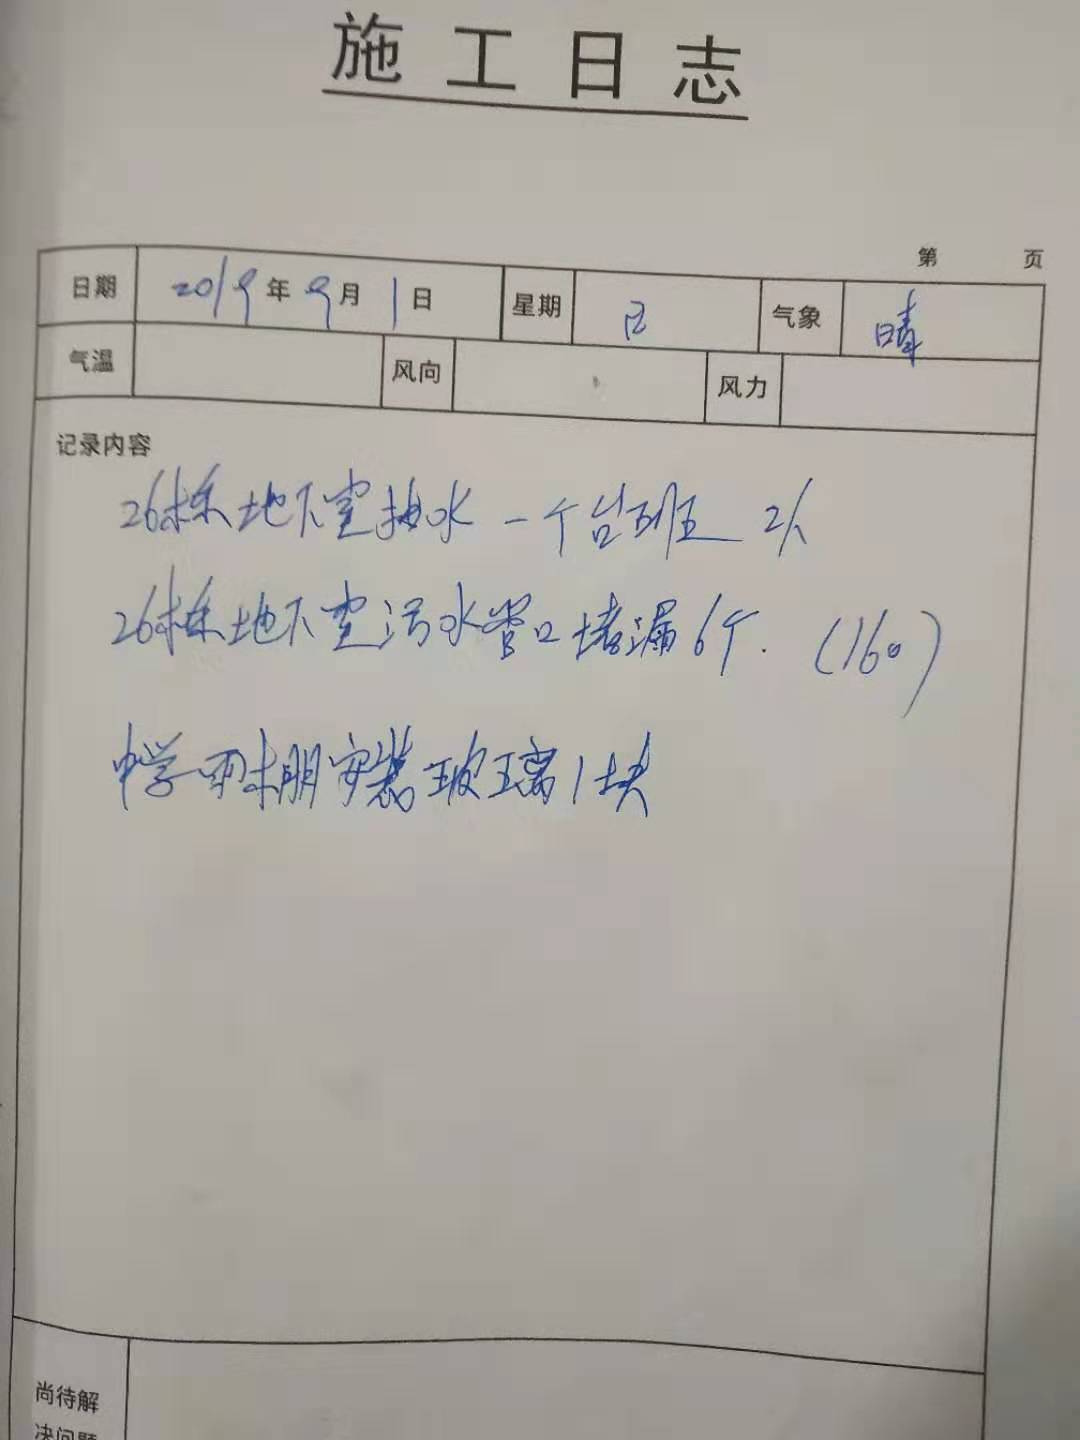 施工日志
第 页
日期 2019年9月1日 星期 日 气象 晴
气温 风向 风力
记录内容
26栋地下室抽水一个台班 2人
26栋地下室污水管口堵漏6个. (160)
中学雨棚安装玻璃1块
尚待解
决问题